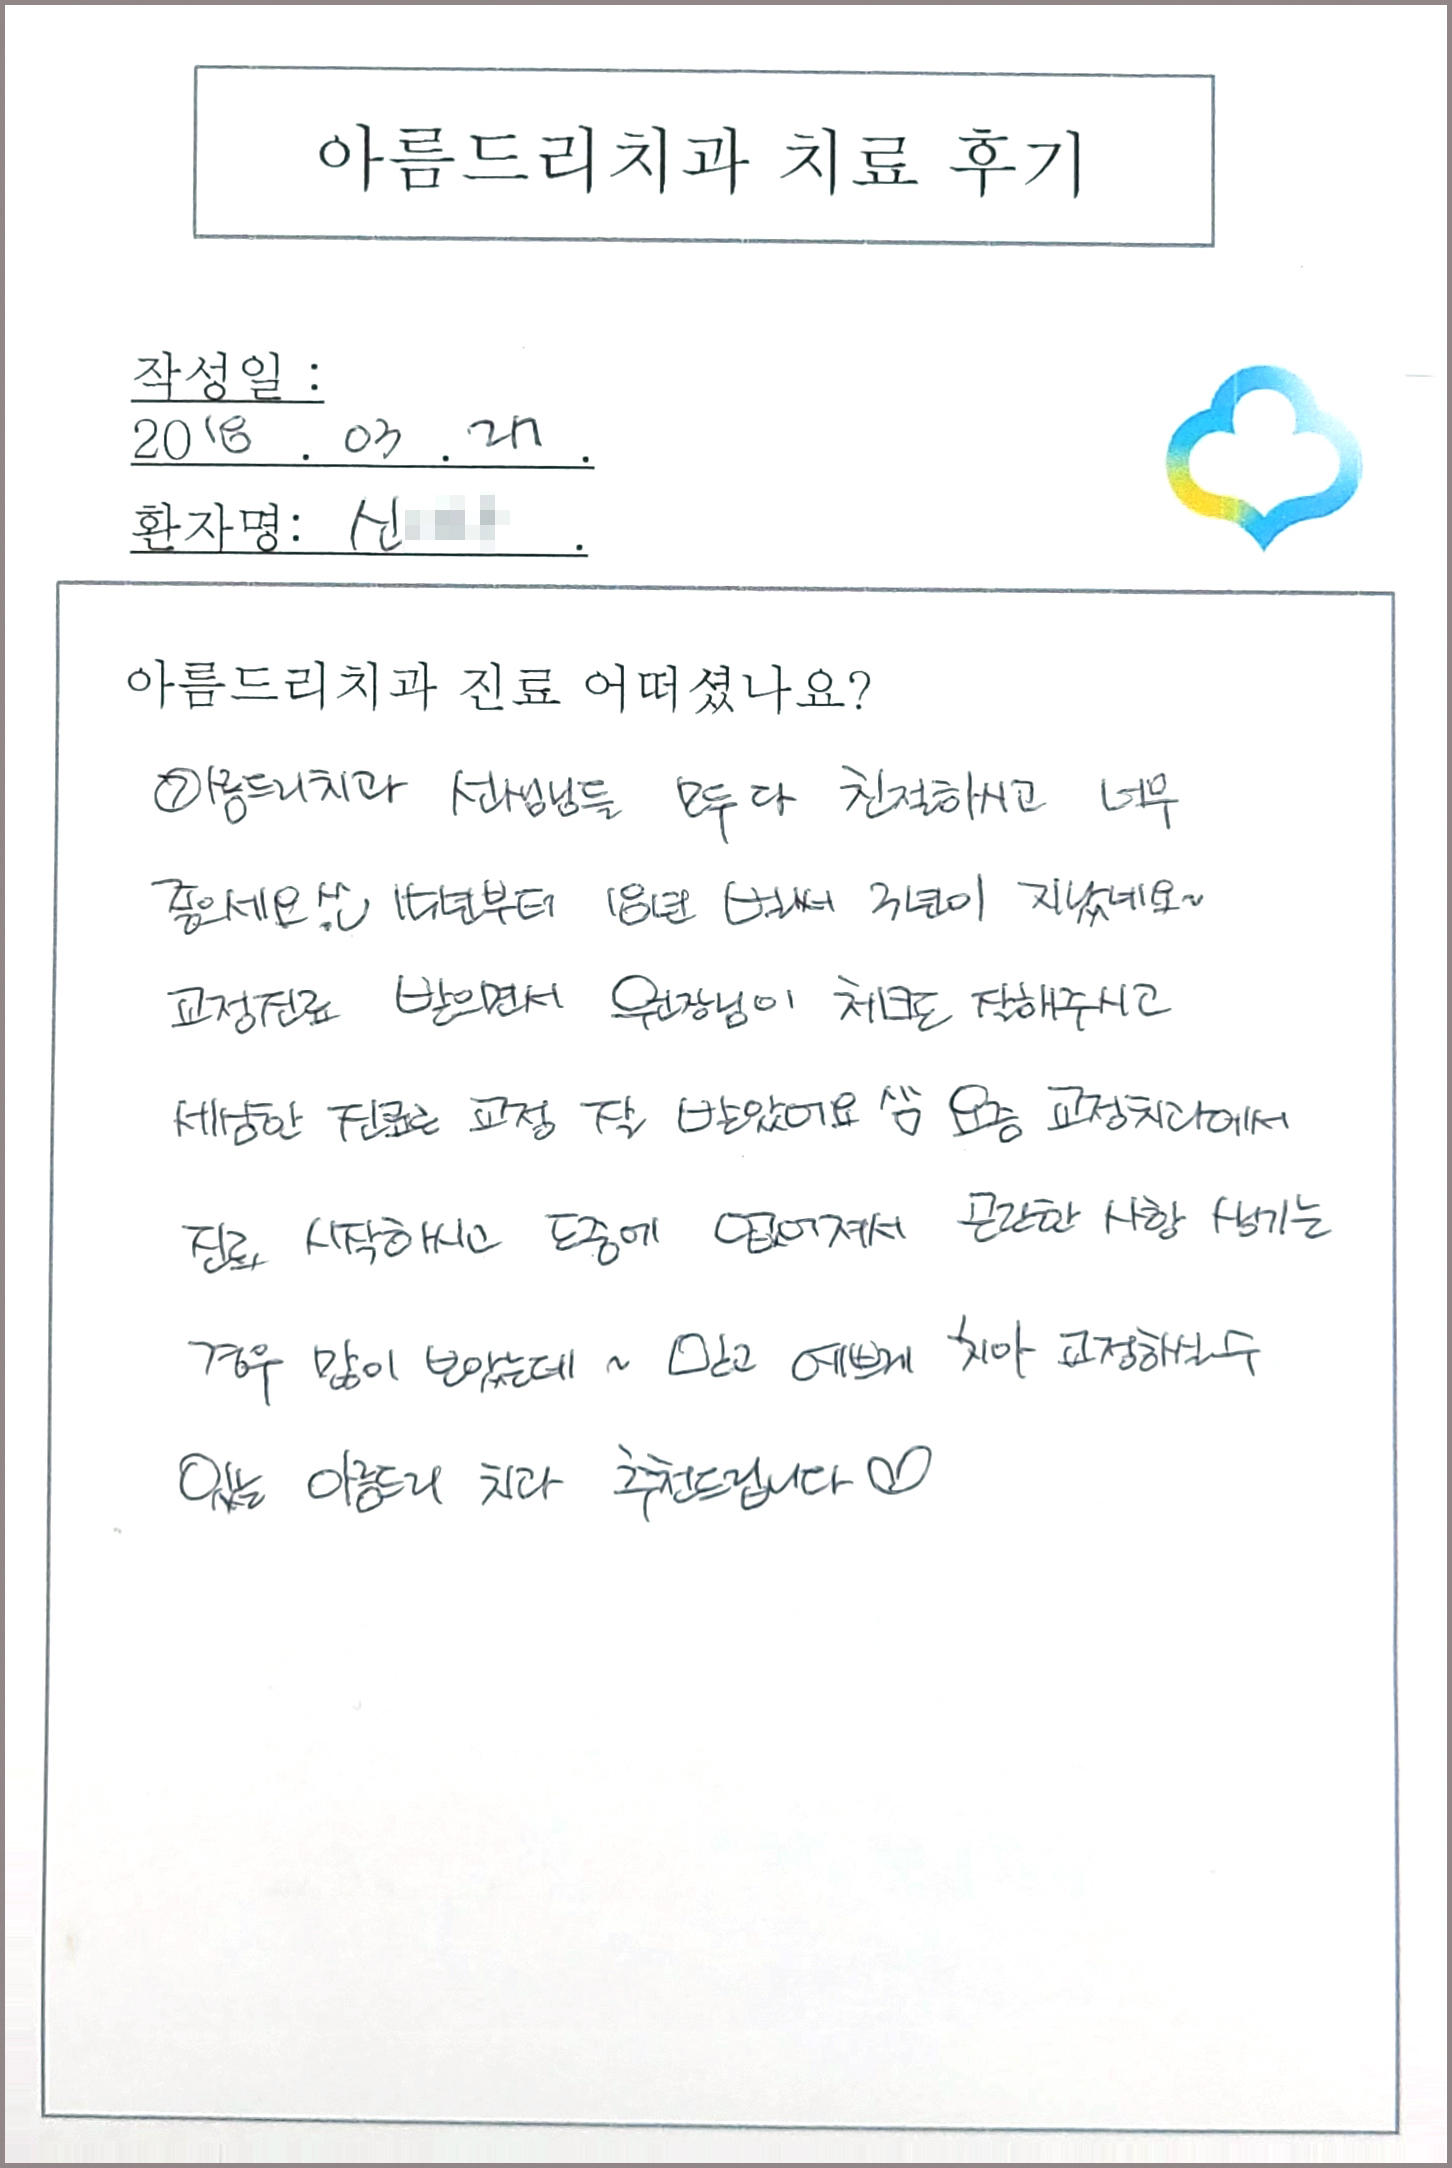 아름드리치과 치료 후기
작성일 :
2018 . 03 . 27 .
환자명: 신 .
아름드리치과 진료 어떠셨나요?
아름드리치과 선생님들 모두 다 친절하시고 너무
좋으세요 15년부터 18년 벌써 3년이 지났네요~
교정진료 받으면서 원장님이 체크도 잘해주시고
세심한 진료로 교정 잘 받았어요 ^^ 요즘 교정치과에서
진료 시작하시고 도중에 없어져서 곤란한 사항 생기는
경우 많이 보았는데 ~ 믿고 예쁘게 치아 교정하실 수
있는 아름드리 치과 추천드립니다♡